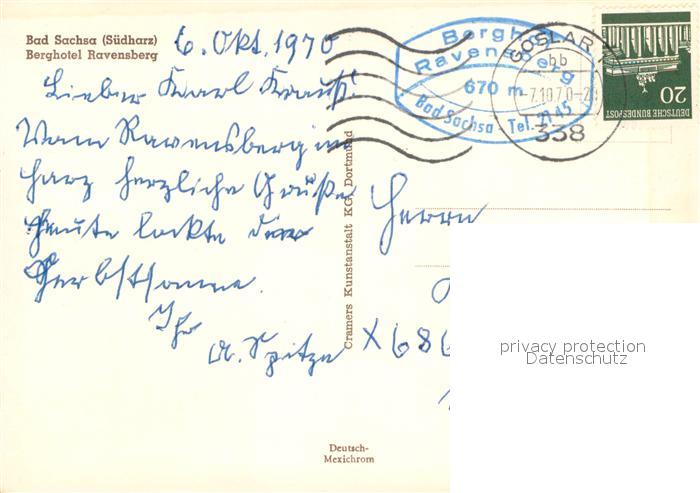 Bad Sachsa (Südharz)
Berghotel Ravensberg
6. Okt. 1970
Lieber Karl Krauß!
Vom Ravensberg im
Harz herzliche Grüße
Heute lockte die
Herbstsonne.
Ihr
A. Spitze
Herrn
X686
Cramers Kunstanstalt KG, Dortmund
Deutsch-
Mexichrom
Bergho
Ravensberg
670 m
Bad Sachsa - Tel. 2145
GOSLAR 1
bb
-7.10.70-2
338
20
DEUTSCHE BUNDESPOST
privacy protection
Datenschutz